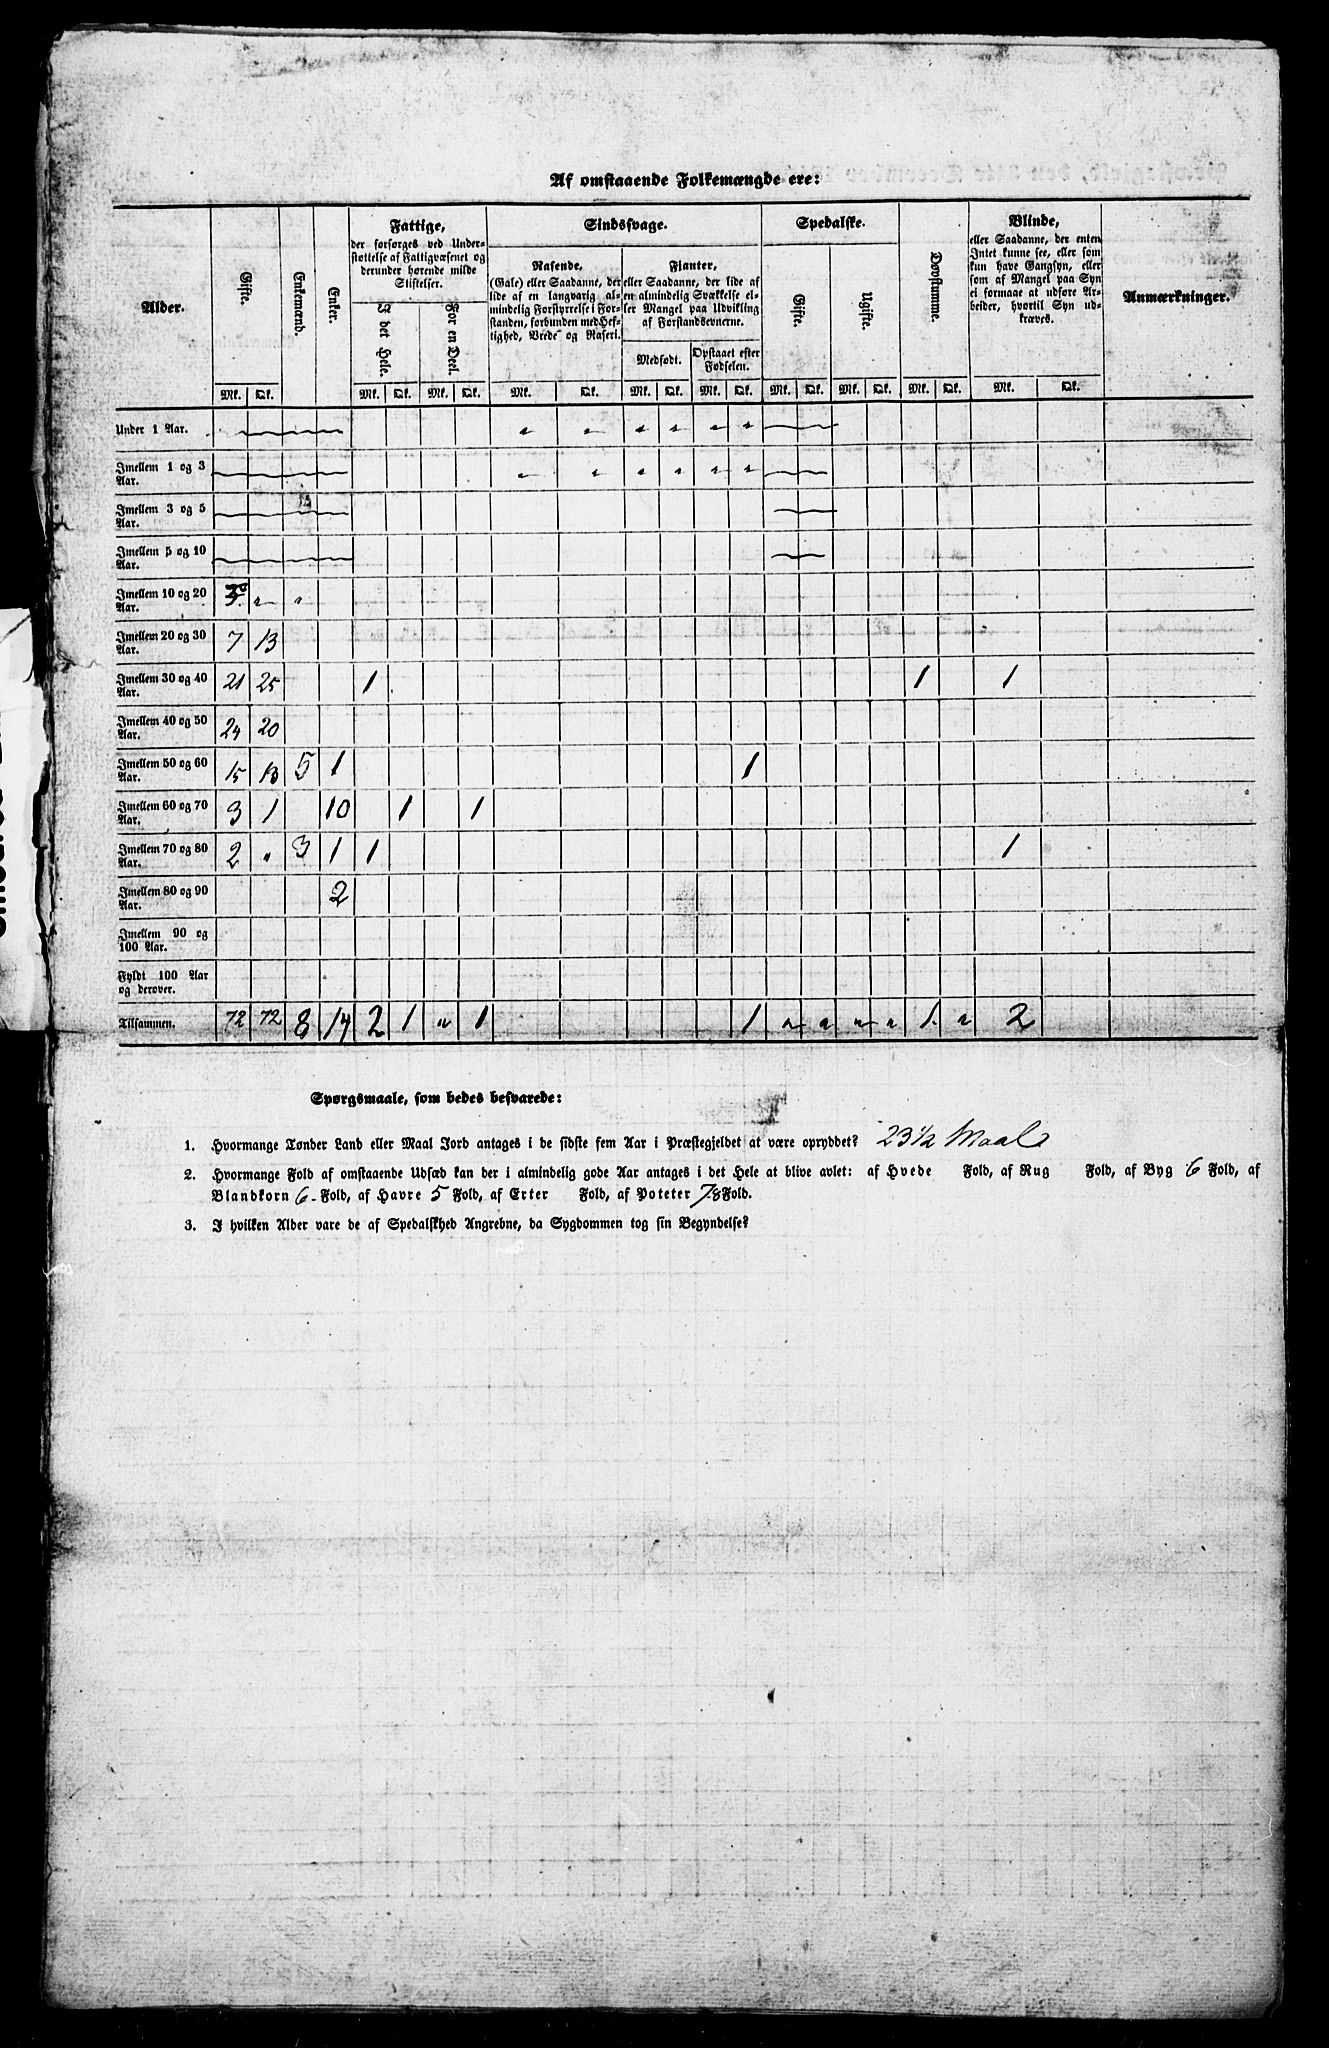 Af omstaaende Folkemængde ere:
Alder.
Gifte.
Enkemænd.
Enker.
Fattige,
der forsørges ved Under-
støttelse af Fattigvæsenet og
derunder hørende milde
Stiftelser.
I det Hele.
For en Deel.
Sindssvage.
Rasende,
(Gale) eller Saadanne, der
lide af en langvarig al-
mindelig Forstyrrelse i For-
standen, forbunden med Hef-
tighed, Vrede og Raseri.
Fianter,
eller Saadanne, der lide af
en almindelig Svækkelse el-
ler Mangel paa Udvikling
af Forstandsevnerne.
Medfødt.
Opstaaet efter
Fødselen.
Spedalske.
Gifte.
Ugifte.
Døvstumme.
Blinde,
eller Saadanne, der enten
Intet kunne see, eller som
kun have Gangsyn, eller
som af Mangel paa Syn
ei formaae at udføre Ar-
beider, hvortil Syn ud-
kræves.
Anmærkninger.
Mk. Qk. Mk. Qk. Mk. Qk. Mk. Qk. Mk. Qk. Mk. Qk. Mk. Qk. Mk. Qk. Mk. Qk. Mk. Qk.
Under 1 Aar. " " " " " "
Imellem 1 og 3
Aar. " " " " " "
Imellem 3 og 5
Aar.
Imellem 5 og 10
Aar.
Imellem 10 og 20
Aar. " "
Imellem 20 og 30
Aar. 7 13
Imellem 30 og 40
Aar. 21 25 1 1 1
Imellem 40 og 50
Aar. 24 20
Imellem 50 og 60
Aar. 15 13 5 1 1
Imellem 60 og 70
Aar. 3 1 10 1 1
Imellem 70 og 80
Aar. 2 " 3 1 1 1
Imellem 80 og 90
Aar. 2
Imellem 90 og
100 Aar.
Fyldt 100 Aar
og derover.
Tilsammen. 72 72 8 14 2 1 " 1 1 " " " " 1. " 2
Spørgsmaale, som bedes besvarede:
1. Hvormange Tønder Land eller Maal Jord antages i de sidste fem Aar i Præstegjeldet at være opryddet? 23 1/2 Maal
2. Hvormange Fold af omstaaende Udsæd kan der i almindelig gode Aar antages i det Hele at blive avlet: af Hvede Fold, af Rug Fold, af Byg 6 Fold, af
Blandkorn 6 Fold, af Havre 5 Fold, af Erter Fold, af Poteter 7/8 Fold.
3. I hvilken Alder vare de af Spedalskhed Angrebne, da Sygdommen tog sin Begyndelse?